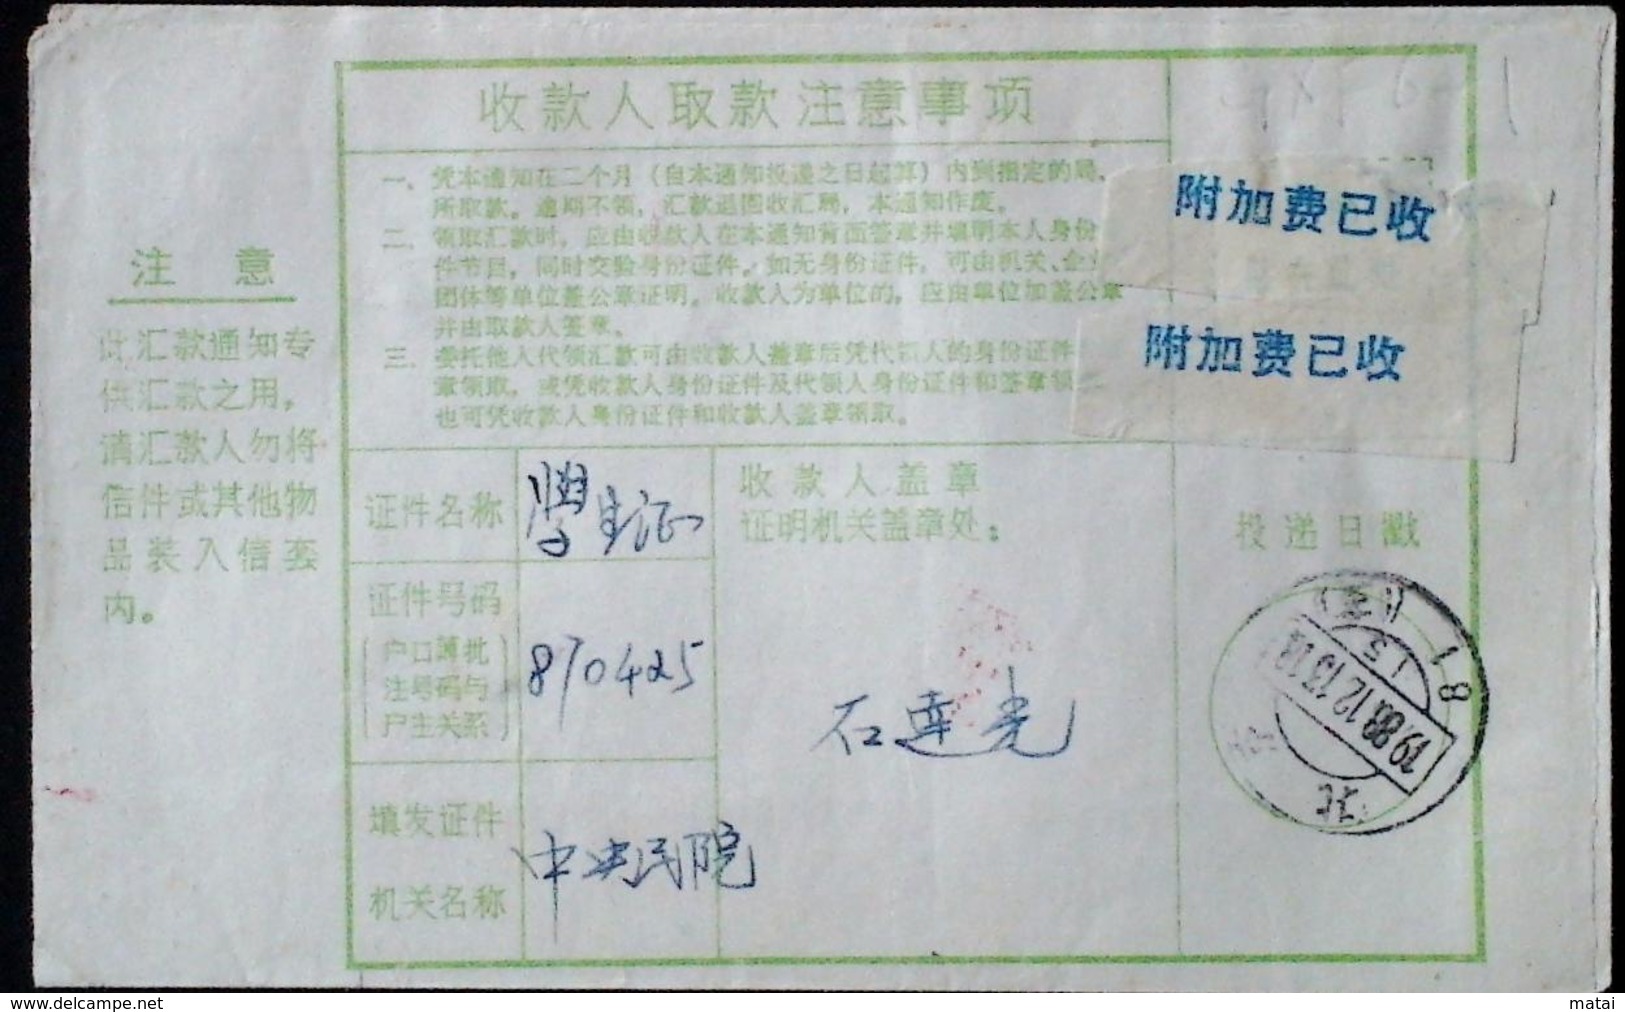 收款人取款注意事项
一、凭本通知在二个月（自本通知投递之日起算）内到指定的局、
所取款。逾期不领，汇款退回收汇局，本通知作废。
二、领取汇款时，应由收款人在本通知背面签章并填明本人身份
件节目，同时交验身份证件。如无身份证件，可由机关、企
团体等单位盖公章证明。收款人为单位的，应由单位加盖公章
并由取款人签章。
三、委托他人代领汇款可由收款人盖章后凭代领人的身份证件
章领取，或凭收款人身份证件及代领人身份证件和签章领
也可凭收款人身份证件和收款人盖章领取。
附加费已收
附加费已收
注意
此汇款通知专
供汇款之用，
请汇款人勿将
信件或其他物
品装入信套
内。
证件名称
学生证
证件号码
（户口簿批
注号码与
户主关系）
870425
填发证件
机关名称
中央民院
收款人盖章
证明机关盖章处：
石连光
投递日戳
北京
1988.12.10.18
15
81
delcampe.net
matai